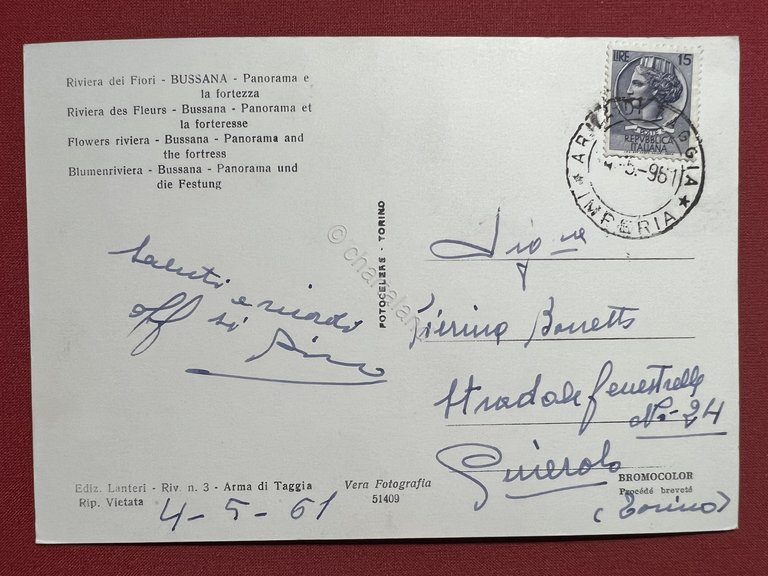 Riviera dei Fiori - BUSSANA - Panorama e
la fortezza
Riviera des Fleurs - Bussana - Panorama et
la forteresse
Flowers riviera - Bussana - Panorama and
the fortress
Blumenriviera - Bussana - Panorama und
die Festung
LIRE 15
REPVBBLICA
ITALIANA
ARMA DI TAGGIA
5.-961
IMPERIA
FOTOCELERE - TORINO
© charalam
Saluti e ricordi
off si
Pino
Sig.na
Pierina Borretts
Stradale fenestrelle
No 24
Pinerolo
(Torino)
Ediz. Lanteri - Riv. n. 3 - Arma di Taggia
Rip. Vietata
4-5-61
Vera Fotografia
51409
BROMOCOLOR
Procédé breveté